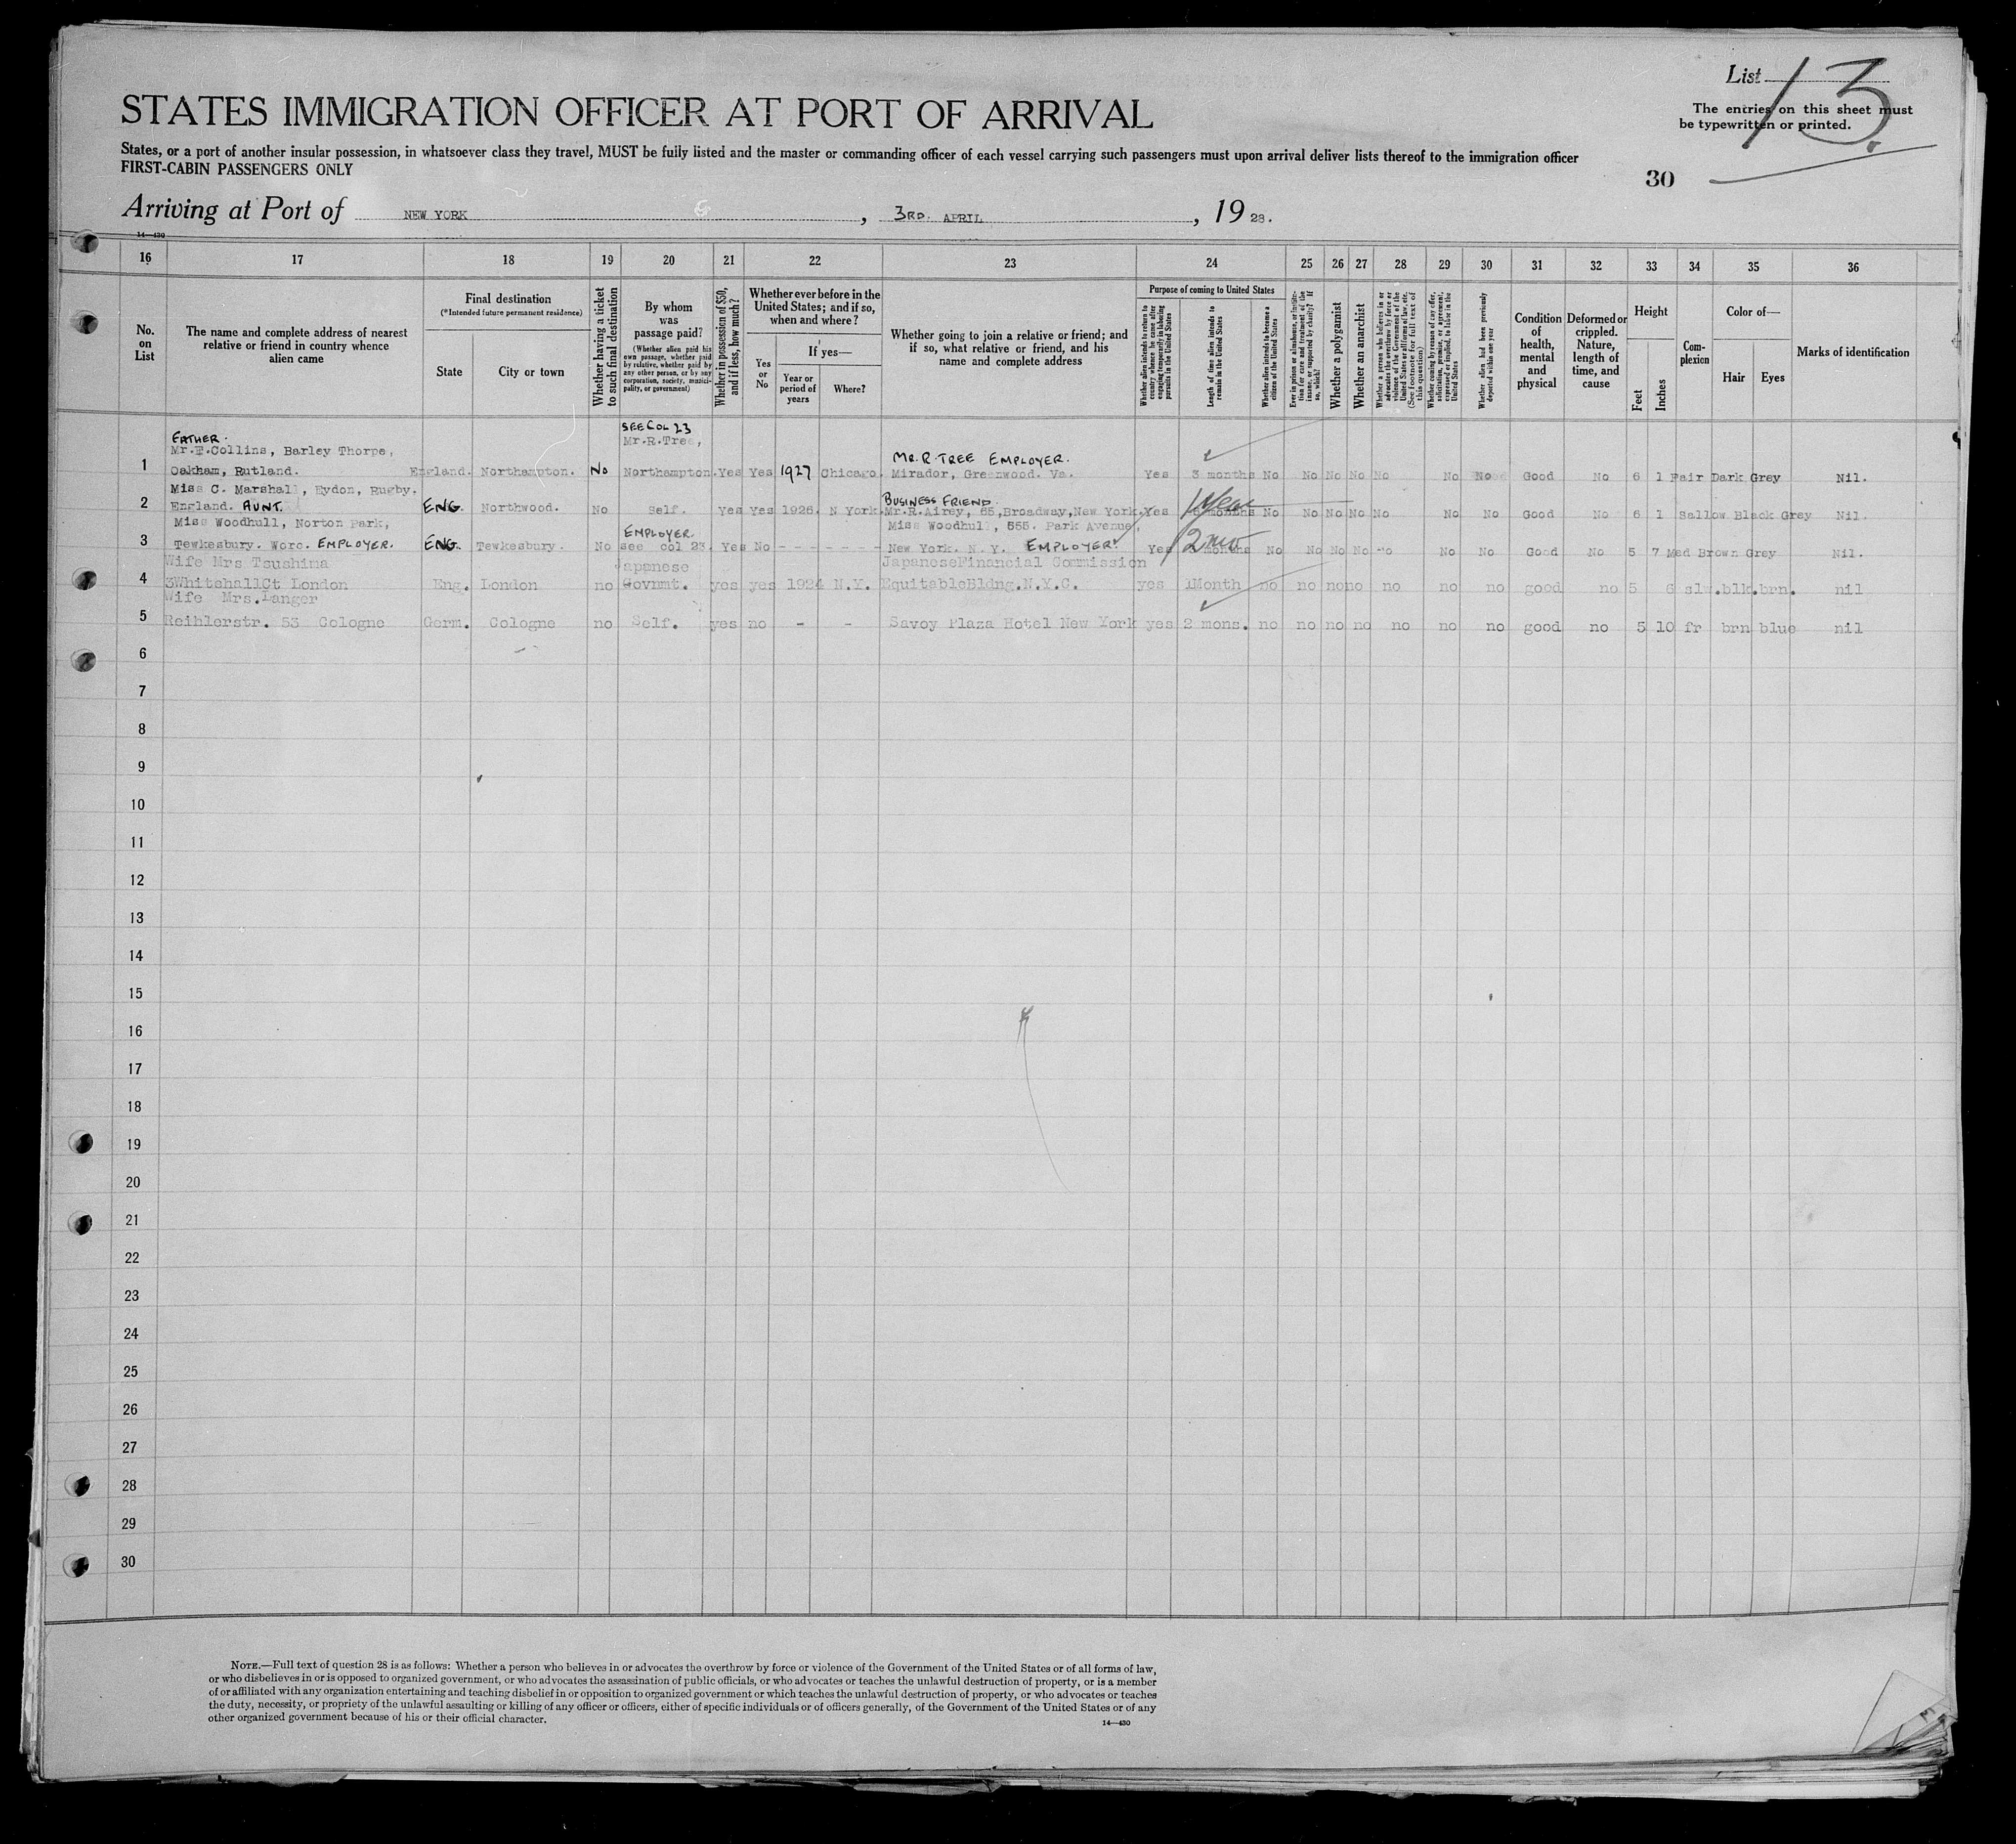 List 13.
STATES IMMIGRATION OFFICER AT PORT OF ARRIVAL
The entries on this sheet must
be typewritten or printed.
States, or a port of another insular possession, in whatsoever class they travel, MUST be fully listed and the master or commanding officer of each vessel carrying such passengers must upon arrival deliver lists thereof to the immigration officer
FIRST-CABIN PASSENGERS ONLY
30
Arriving at Port of NEW YORK, 3RD. APRIL, 1928.
14—430
16 17 18 19 20 21 22 23 24 25 26 27 28 29 30 31 32 33 34 35 36
No.
on
List
The name and complete address of nearest
relative or friend in country whence
alien came
Final destination
(*Intended future permanent residence)
State
City or town
Whether having a ticket
to such final destination
By whom
was
passage paid?
(Whether alien paid his
own passage, whether paid
by relative, whether paid by
any other person, or by any
corporation, society, munici-
pality, or government)
Whether in possession of $50,
and if less, how much?
Whether ever before in the
United States; and if so,
when and where?
Yes
or
No
If yes—
Year or
period of
years
Where?
Whether going to join a relative or friend; and
if so, what relative or friend, and his
name and complete address
Purpose of coming to United States
Whether alien intends to return to
country whence he came after
engaging temporarily in laboring
pursuits in the United States
Length of time alien intends to
remain in the United States
Whether alien intends to become a
citizen of the United States
Ever in prison or almshouse, or institu-
tion for care and treatment of the
insane, or supported by charity? If
so, which?
Whether a polygamist
Whether an anarchist
Whether a person who believes in or
advocates the overthrow by force or
violence of the Government of the
United States or all forms of law, etc.
(See footnote for full text of
this question)
Whether coming by reason of any offer,
solicitation, promise, or agreement,
expressed or implied, to labor in the
United States
Whether alien had been previously
deported within one year
Condition
of
health,
mental
and
physical
Deformed or
crippled.
Nature,
length of
time, and
cause
Height
Feet
Inches
Com-
plexion
Color of—
Hair
Eyes
Marks of identification
FATHER.
SEE COL 23
Mr.E.Collins, Barley Thorpe,
Mr.R.Tree,
MR. R. TREE EMPLOYER.
1 Oakham, Rutland. England. Northampton. No Northampton. Yes Yes 1927 Chicago. Mirador, Greenwood. Va. Yes 3 months No No No No No No No Good No 6 1 Fair Dark Grey Nil.
Miss C. Marshall, Eydon, Rugby.
BUSINESS FRIEND.
1 Year
2 England. AUNT. ENG. Northwood. No Self. Yes Yes 1926. N York. Mr.R.Airey, 65, Broadway, New York. Yes months No No No No No No No Good No 6 1 Sallow Black Grey Nil.
Miss Woodhull, Norton Park,
EMPLOYER.
Miss Woodhull, 555. Park Avenue,
2 mo
3 Tewkesbury. Worc. EMPLOYER. ENG. Tewkesbury. No see col 23. Yes No - - - - - - New York. N.Y. EMPLOYER. Yes months No No No No No No No Good No 5 7 Med Brown Grey Nil.
Wife Mrs Tsushima
Japanese
JapaneseFinancial Commission
4 3WhitehallCt London Eng. London no Govnmt. yes yes 1924 N.Y. EquitableBldng.N.Y.C. yes 1Month no no no no no no no good no 5 6 slw.blk.brn. nil
Wife Mrs.Langer
5 Reihlerstr. 53 Cologne Germ. Cologne no Self. yes no - - Savoy Plaza Hotel New York yes 2 mons. no no no no no no no good no 5 10 fr brn blue nil
6
7
8
9
10
11
12
13
14
15
16
17
18
19
20
21
22
23
24
25
26
27
28
29
30
NOTE.—Full text of question 28 is as follows: Whether a person who believes in or advocates the overthrow by force or violence of the Government of the United States or of all forms of law,
or who disbelieves in or is opposed to organized government, or who advocates the assassination of public officials, or who advocates or teaches the unlawful destruction of property, or is a member
of or affiliated with any organization entertaining and teaching disbelief in or opposition to organized government or which teaches the unlawful destruction of property, or who advocates or teaches
the duty, necessity, or propriety of the unlawful assaulting or killing of any officer or officers, either of specific individuals or of officers generally, of the Government of the United States or of any
other organized government because of his or their official character.
14—430